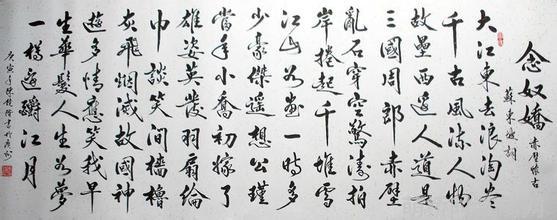 念奴嬌 赤壁懷古
蘇東坡詞
大江東去浪淘尽
千古風流人物
故壘西邊人道是
三國周郎赤壁
亂石穿空驚濤拍
岸捲起千堆雪
江山如畫一時多
少豪傑遙想公瑾
當年小喬初嫁了
雄姿英發羽扇綸
巾談笑間檣櫓
灰飛烟滅故國神
遊多情應笑我早
生華髮人生如夢
一樽還酹江月
庚寅年陳書於廣州